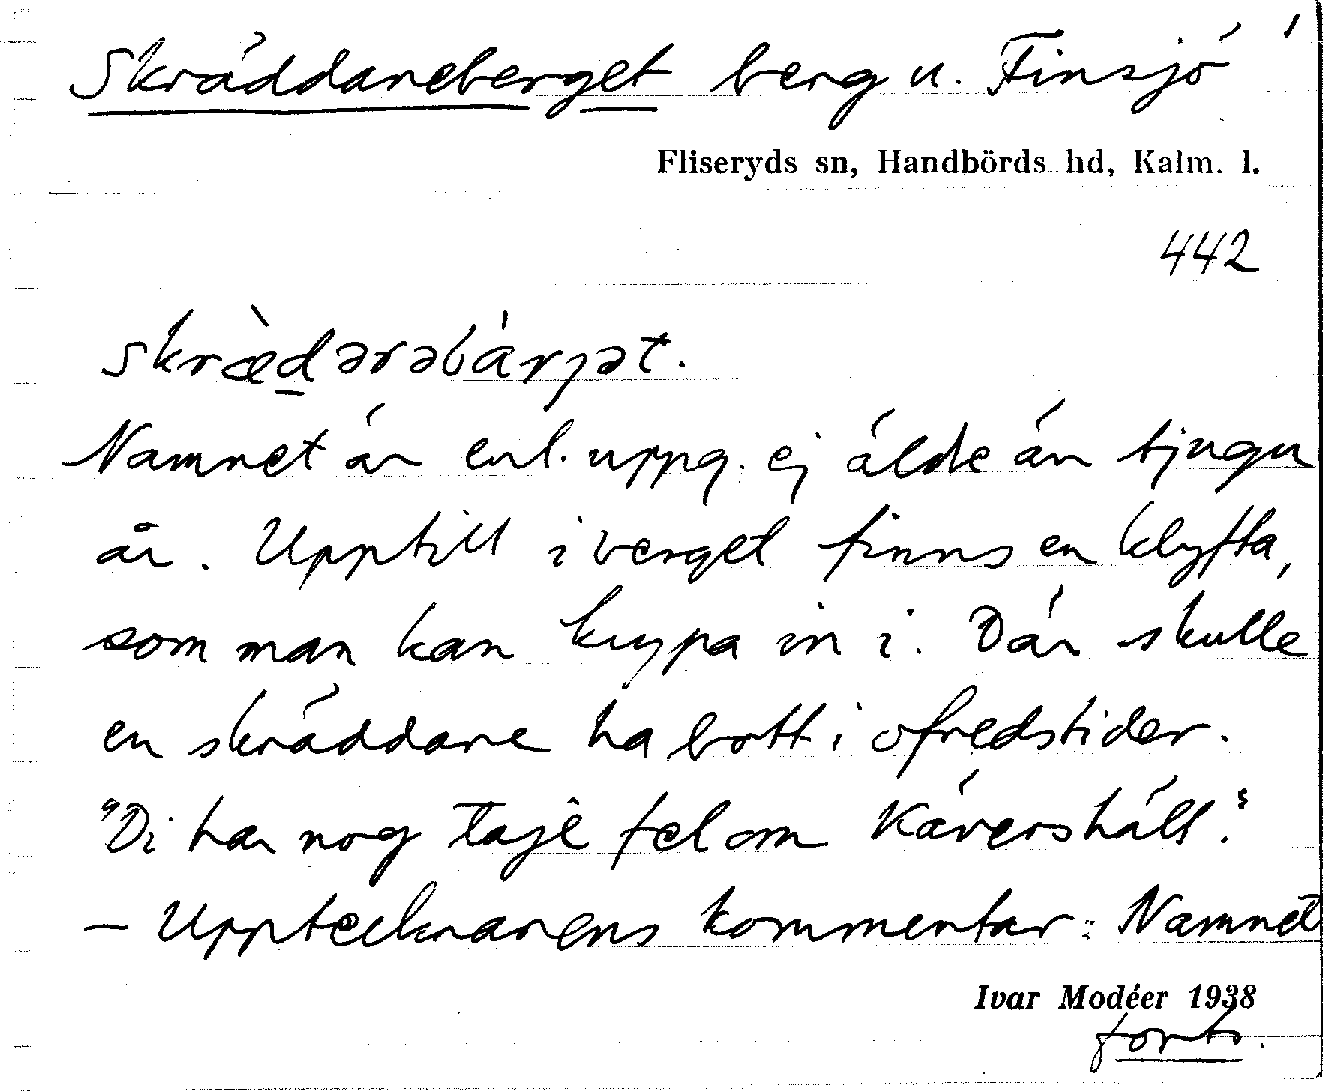 Skräddareberget berg u. Finsjö 1
Fliseryds sn, Handbörds hd, Kalm. l.
442
skræ̀darabárjət.
Namnet är enl. uppg. ej äldre än tjugu
år. Upptill i berget finns en klyfta,
som man kan krypa in i. Där skulle
en skräddare ha bott i ofredstider.
"Di har nog tajé fel om Kävershäll."
— Upptecknarens kommentar: Namnet
Ivar Modéer 1938
forts.